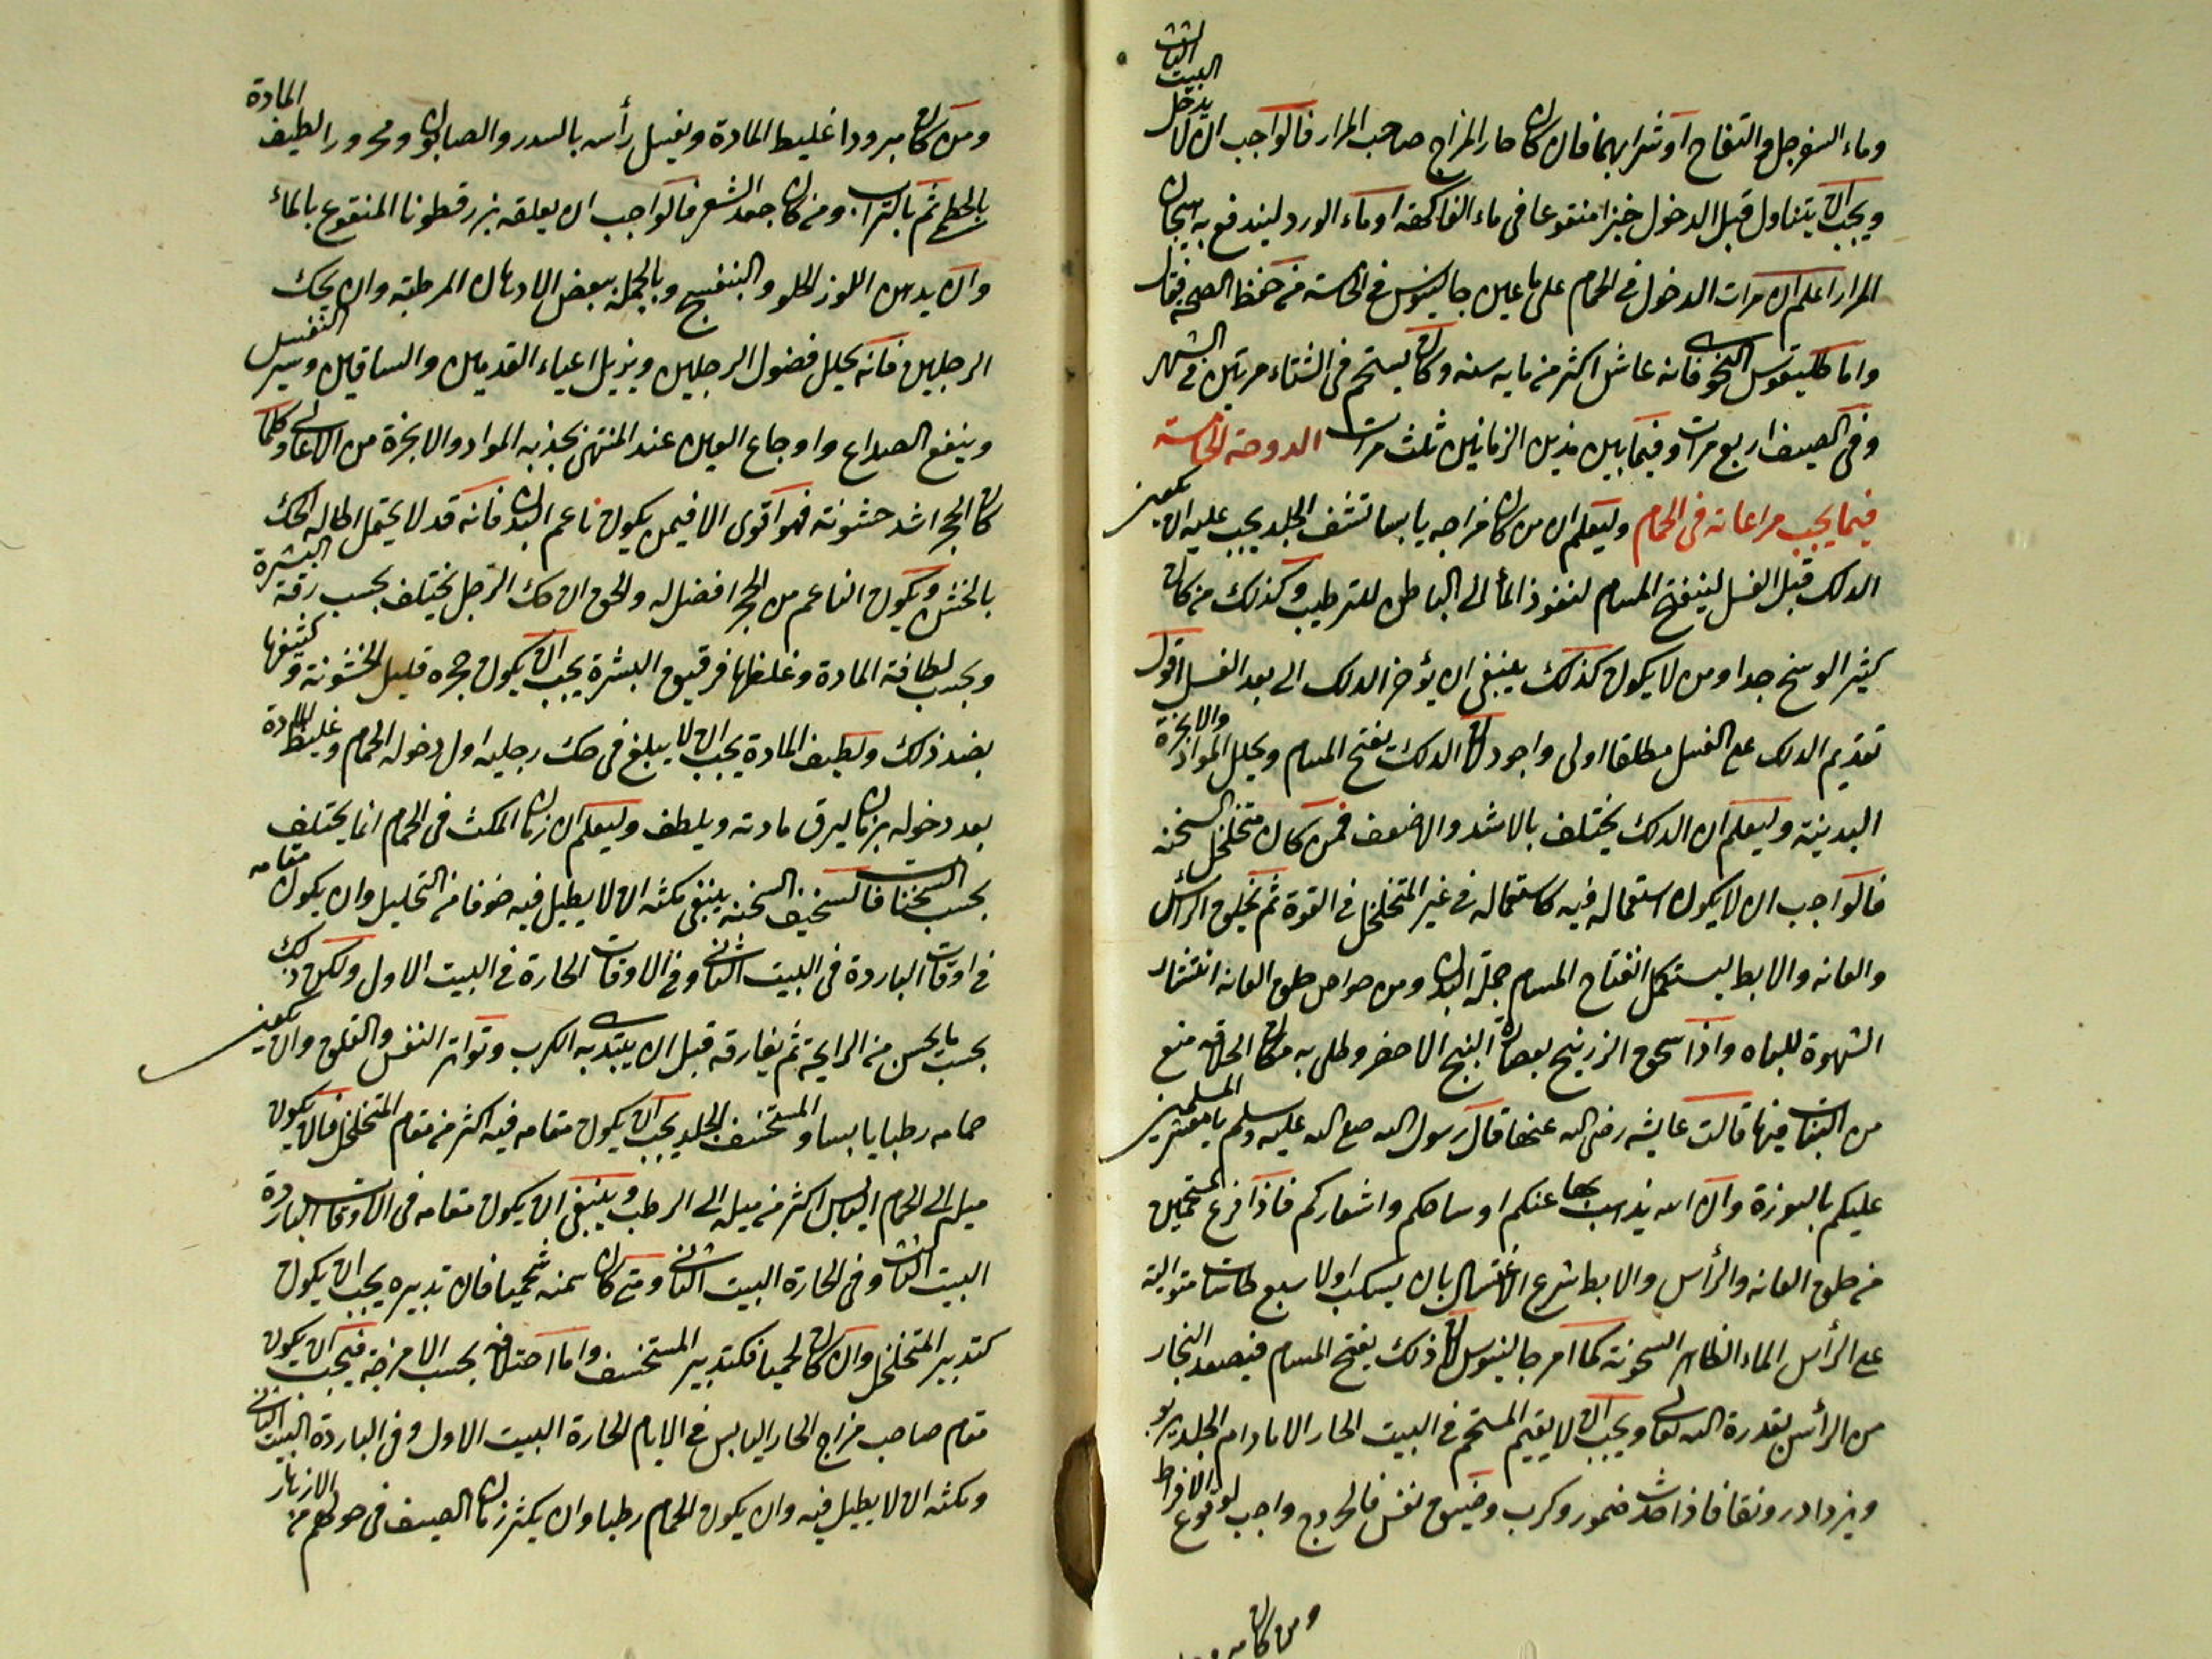 وماء السفرجل والتفاح او شرابهما فان كان حار المزاج صاحب المرار فالواجب ان لا يدخل البيت الثالث
ويجب ان يتناول قبل الدخول خبزا منقوعا فى ماء الفاكهة او ماء الورد ليندفع به هيجان
المرار اعلم ان مرات الدخول فى الحمام على ما عين جالينوس فى الخامسة من حفظ الصحة فقال
واما طليقوس النحوى فانه عاش اكثر من مايه سنه وكان يستحم فى الشتاء مرتين فى الشهر
وفى الصيف اربع مرات وفيما بين هذين الزمانين ثلث مرات الدوحة الخامسة
فيما يجب مراعاته فى الحمام وليعلم ان من كان مزاجه يابسا نشف الجلد يجب عليه ان يكون
الدلك قبل الغسل لينفتح المسام لنفوذ الماء الى الباطن للترطيب وكذلك من كان
كثير الوسخ جدا ومن لا يكون كذلك ينبغى ان يؤخر الدلك الى بعد الغسل اقول
تقديم الدلك على الغسل مطلقا اولى واجود لان الدلك يفتح المسام ويحلل المواد والابخرة
البدنية وليعلم ان الدلك يختلف بالاشد والاضعف فمن كان متخلخل السحنه
فالواجب ان لا يكون استعماله فيه كاستعماله فى غير المتخلخل فى القوة ثم يحلق الرأس
والعانه والابط ليستكمل انفتاح المسام جملة البدن ومن خواص حلق العانه انتشار
الشهوة للباه واذا سحق الزرنيخ بعصارة البنج الاخضر وطلى به مكان الحلاقه منع
من النبات فيها قالت عايشه رضى الله عنها قال رسول الله صلع الله عليه وسلم يا معشر المسلمين
عليكم بالنورة وان الله يذهب بها عنكم اوساخكم واشعاركم فاذا فرغ المستحمين
من حلق العانه والرأس والابط شرع الاغتسال بان يسكب اولا سبع طاسات متوالية
على الرأس الماء الظاهر السخونة كما امر جالينوس لان ذلك يفتح المسام فيصعد البخار
من الرأس بقدرة الله تعالى ويجب ان لا يقيم المستحم فى البيت الحار الا ما دام الجلد يربو
ويزداد رونقا فاذا حدث ضمور وكرب وضيق نفس فالخروج واجب لوقوع الافراط
ومن كان مبرودا
ومن كان مبرودا غليظ المادة ويغسل رأسه بالسدر والصابون ومحرور لطيف المادة
بالخطم ثم بالتراب ومن كان جعد الشعر فالواجب ان يعلقه بزرقطونا المنقوع بالماء
وان يدهن اللوز الحلو والبنفسج وبالجملة ببعض الادهان المرطبة وان يحك
الرجلين فانه يحلل فضول الرجلين ويزيل اعياء القدمين والساقين
وينفع الصداع واوجاع العين عند المنتهى بجذبه المواد والابخرة من الاعالى وكلما
كان الحجر اشد خشونة فهو اقوى الا فيمن يكون ناعم البدن فانه قد لا يحتمل اطاله الحك
بالخشن ويكون الناعم من الحجر افضل له والحق ان حك الرجل يختلف بحسب رقة البشرة
وبحسب لطافة المادة وغلظها فرقيق البشرة يجب ان يكون حجره قليل الخشونة وكثيفها
بضد ذلك ولطيف المادة يجب ان لا يبلغ فى حك رجليه اول دخوله الحمام وغليظ المادة
بعد دخوله بزمان ليرق مادته ويلطف وليعلم ان زمان المكث فى الحمام انما يختلف
بحسب السحنات فالسخيف السحنه ينبغى مكثه ان لا يطيل فيه خوفا من التحليل وان يكون مقامه
فى اوقات الباردة فى البيت الثانى وفى الاوقات الحارة فى البيت الاول ولكن ذلك
بحسب ما يحس من الرايحة ثم يفارقه قبل ان يبتدى به الكرب وتواتر النفس والقلق وان يكون
حمامه رطبا يابسا والمستخصف الجلد يجب ان يكون مقامه فيه اكثر من مقام المتخلخل فان يكون
ميله الى الحمام اليابس اكثر من ميله الى الرطب وينبغى ان يكون مقامه فى الاوقات الباردة
البيت الثالث وفى الحارة البيت الثانى ومتى كان سمنه شحميا فان تدبيره يجب ان يكون
كتدبير المتخلخل وان كان لحميا فكتدبير المستخصف واما اختلافه بحسب الامزجة فيجب ان يكون
مقام صاحب مزاج الحار اليابس فى الايام الحارة البيت الاول وفى الباردة البيت الثانى
ومكثه ان لا يطيل فيه وان يكون الحمام رطبا وان يكثر زمان الصيف فى من الازهار